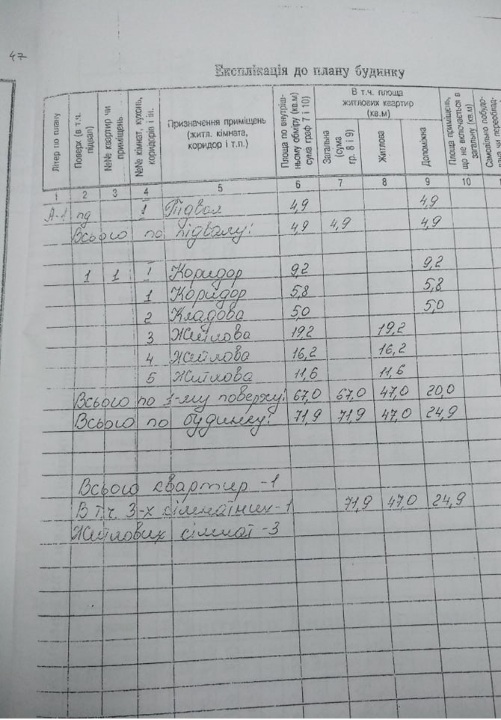 47
Експлікація до плану будинку
Літер по плану
Поверх (в т.ч. підвал)
№№ квартир чи приміщень
№№ кімнат, кухонь, коридорів і ін.
Призначення приміщень (житл. кімната, коридор і т.п.)
Площа по внутрішньому обміру (кв.м) сума граф 7 і 10)
В т.ч. площа житлових квартир (кв.м)
Загальна (сума гр. 8 і 9)
Житлова
Допоміжна
Площа приміщень, що не включається в загальну (кв.м)
Самовільно побудо-
1 2 3 4 5 6 7 8 9 10
А-1 пд І Підвал 4,9 4,9
Всього по підвалу: 4,9 4,9 4,9
1 1 І Коридор 9,2 9,2
1 Коридор 5,8 5,8
2 Кладова 5,0 5,0
3 Житлова 19,2 19,2
4 Житлова 16,2 16,2
5 Житлова 11,6 11,6
Всього по 1-му поверху: 67,0 67,0 47,0 20,0
Всього по будинку: 71,9 71,9 47,0 24,9
Всього квартир -1
В т.ч. 3-х кімнатних-1 71,9 47,0 24,9
Житлових кімнат -3